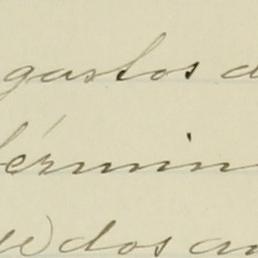 gastos d
términ
dos añ